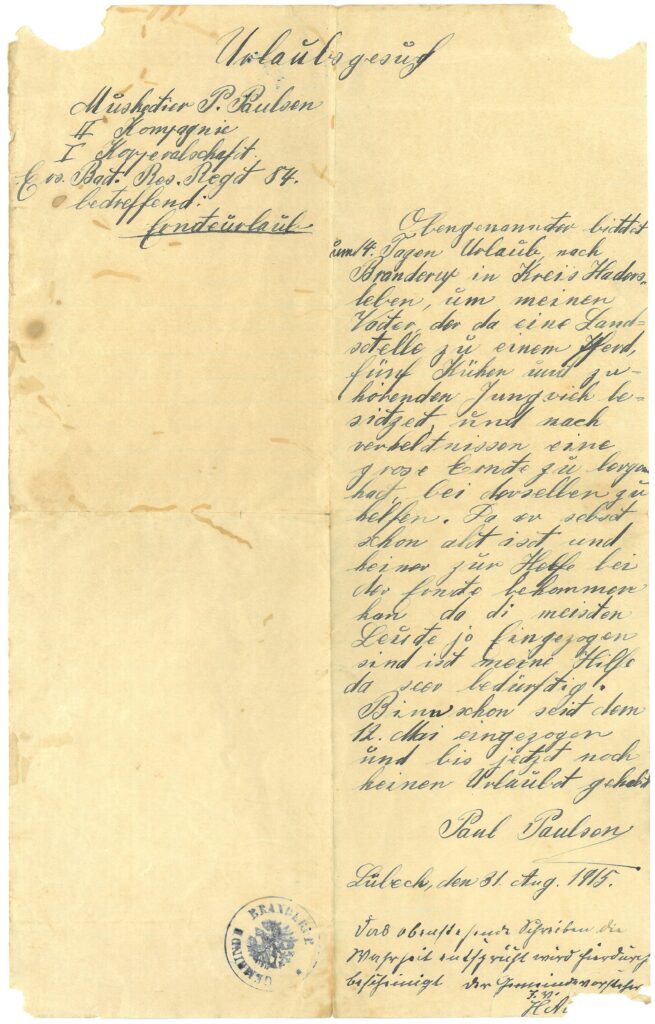 Urlaubsgesuch
Musketier P. Paulsen
II Kompagnie
I Korperalschaft.
Ers. Bat. Res. Regt 84.
betreffend:
Ernteurlaub
Obengenannter bittet
um 14. Tagen Urlaub, nach
Branderup in Kreis Haders-
leben, um meinen
Vater, der da eine Land-
stelle zu einem Pferd,
fünf Kühen und zu-
hörenden Jungvieh be-
sitzet, und nach
verheltnissen eine
grose Ernte zu bergen
hat, bei derselben zu
helfen. Da er selbst
schon alt ist und
keiner zur Helfe bei
der Ernte bekommen
kan da di meisten
Leute jo Eingezogen
sind ist meine Hilfe
da seer bedürftig.
Binn schon seit dem
12. Mai eingezogen
und bis jetzt noch
keinen Urlaubt gehabt
Paul Paulsen
Lübeck, den 31. Aug. 1915.
Das obenstehende Schreiben die
Wahrheit entspricht wird hierdurch
bescheinigt der Gemeindevorsteher
I. V.
GEMEINDE BRANDERUP